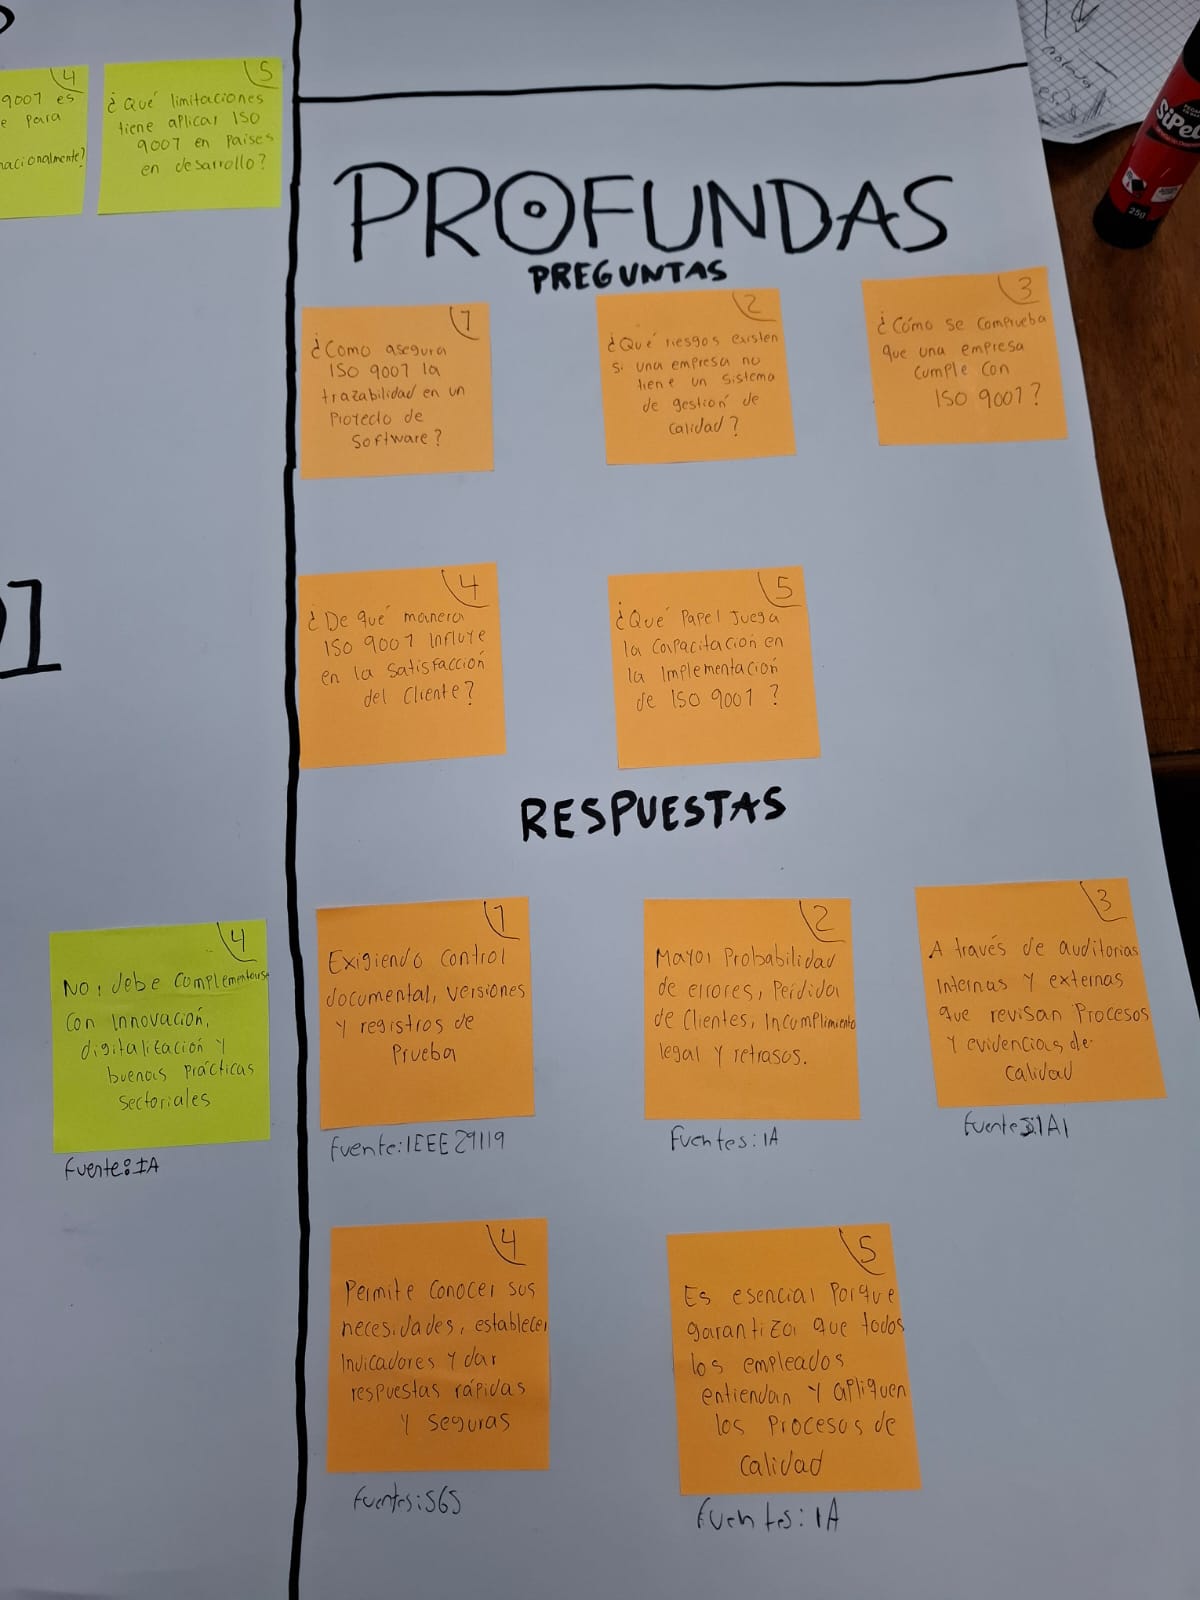 4
9001 es
e para
nacionalmente?
5
¿Qué limitaciones
tiene aplicar ISO
9001 en Paises
en desarrollo?
PROFUNDAS
PREGUNTAS
1
¿Como asegura
ISO 9001 la
trazabilidad en un
Proyecto de
Software?
2
¿Qué riesgos existen
si una empresa no
tiene un sistema
de gestión de
calidad?
3
¿Cómo se comprueba
que una empresa
cumple con
ISO 9001?
4
¿De qué manera
ISO 9001 Influye
en la satisfacción
del Cliente?
5
¿Qué Papel Juega
la Capacitación en
la Implementación
de ISO 9001?
RESPUESTAS
4
No, debe Complementarse
con innovación,
digitalización y
buenas prácticas
sectoriales
Fuente: IA
1
Exigiendo control
documental, versiones
y registros de
Prueba
Fuente: IEEE 29119
2
Mayor Probabilidad
de errores, Perdida
de Clientes, Incumplimiento
legal y retrasos.
Fuentes: IA
3
A través de auditorias
Internas y externas
que revisan Procesos
y evidencias de
calidad
Fuente
4
Permite Conocer sus
necesidades, establecer
Indicadores y dar
respuestas rápidas
y seguras
Fuentes: SGS
5
Es esencial Porque
garantiza que todos
los empleados
entiendan y apliquen
los Procesos de
calidad
Fuentes: IA
SiPel
25g